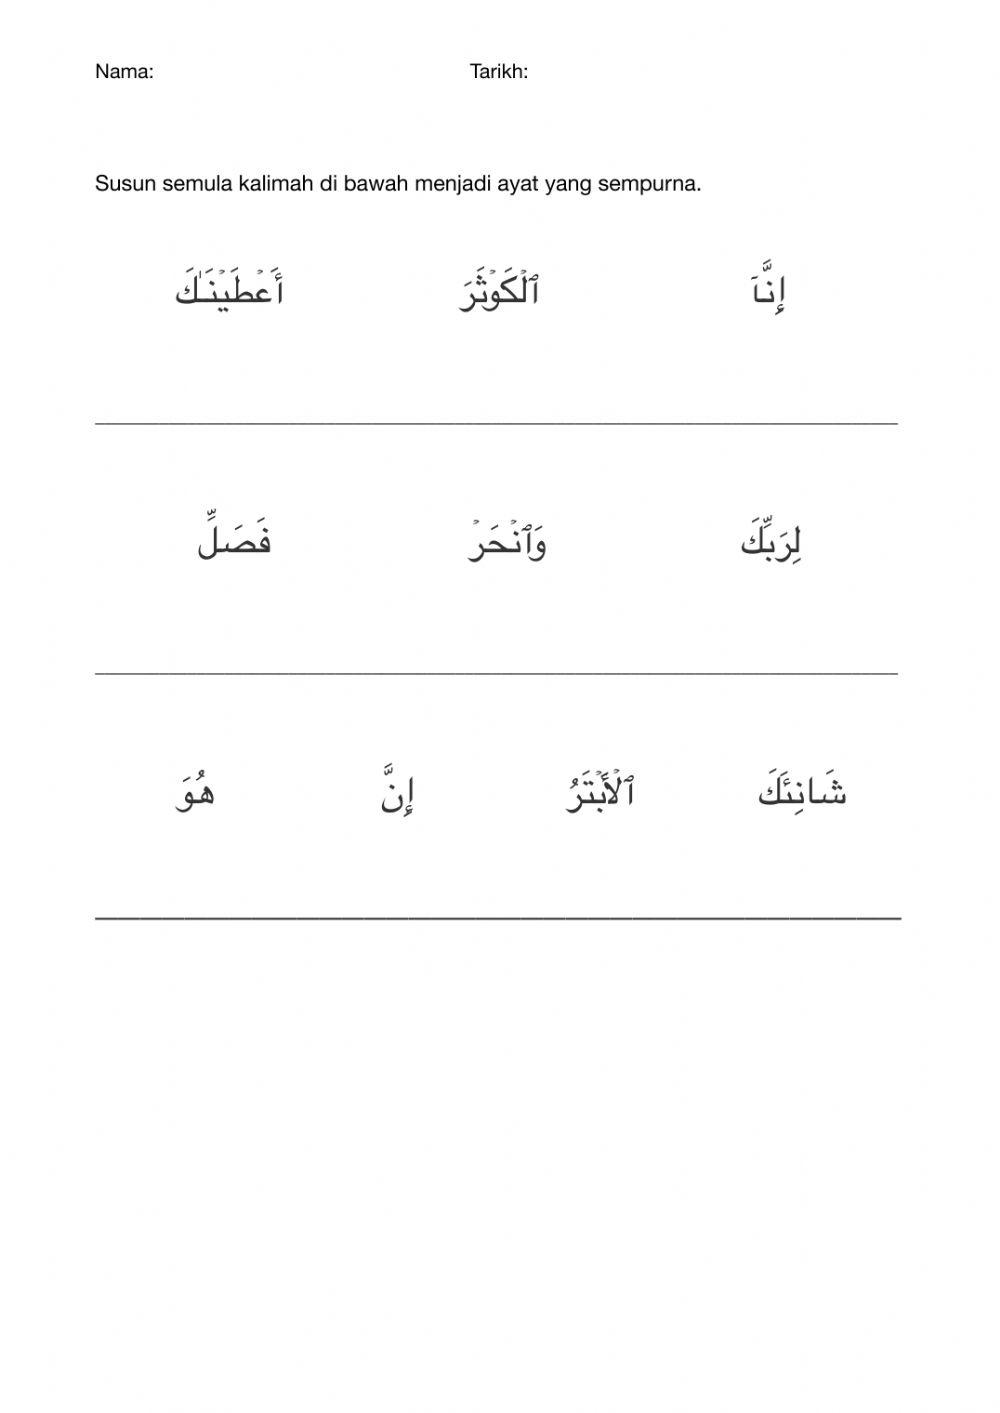 Nama: Tarikh:
Susun semula kalimah di bawah menjadi ayat yang sempurna.
إِنَّآ ٱلْكَوْثَرَ أَعْطَيْنَـٰكَ
لِرَبِّكَ وَٱنْحَرْ فَصَلِّ
شَانِئَكَ ٱلْأَبْتَرُ إِنَّ هُوَ